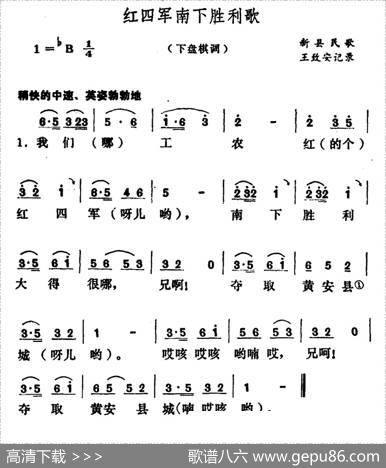 红四军南下胜利歌
1=♭B 1/4
（下盘棋调）
新县民歌
王效安记录
稍快的中速、英姿勃勃地
6·5 323 | 5·6 | 1·6 3 | 2 - | 3·2 3
1.我们（哪）工农红（的个）
3 2 1 | 6·5 4 6 | 5 - | 232 1 | 232 1
红四军（呀儿哟），南下胜利
3·5 6 1 | 5 6 5 3 | 3 2 0 | 3·5 6 1 | 5 6 5
大得很哪，兄啊！夺取黄安县①
3·5 3 2 | 1 - | 3·5 6 1 | 5 6 5 3 | 3 2 0
城（呀儿哟）。哎咳哎咳哟喃哎，兄啊！
3·5 6 1 | 5 6 5 | 3·5 3 2 | 1 -
夺取黄安县城（喃哎咳哟）.
高清下载 >>>
歌谱八六 www.gepu86.com